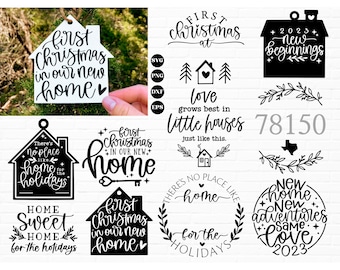 first
Christmas
in our new
home
SVG
PNG
DXF
EPS
FIRST
Christmas
at
2023
new
beginnings
love
grows best in
little houses
just like this.
78150
There's no place like
home
for the
holidays
first
Christmas
IN OUR NEW
home
HOME
Sweet
HOME
for the holidays
first
Christmas
in our new
home
THERE'S NO PLACE LIKE
home
for the
HOLIDAYS
new
home
new
adventures
same
love
2023